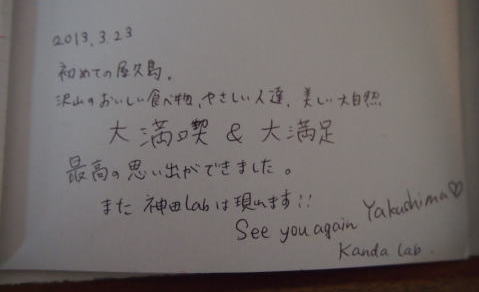 2013.3.23
初めての屋久島。
沢山のおいしい食べ物、やさしい人達、美しい大自然
大満喫 & 大満足
最高の思い出ができました。
また 神田Labは現れます!!
See you again Yakushima♡
Kanda Lab.